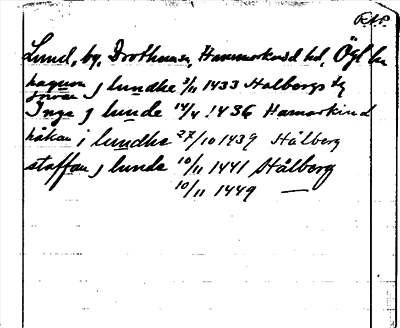 R.A.P.
Lund, by, Drothems, Hammarkind hd, Ögl län
haquon j lundhe 3/11 1433 Halbergs tg
jowan
Inge j lunde 14/4 1436 Hamarkind
håkan i lundhe 27/10 1439 Stålberg
staffan j lunde 10/11 1441 Stålberg
10/11 1449 —